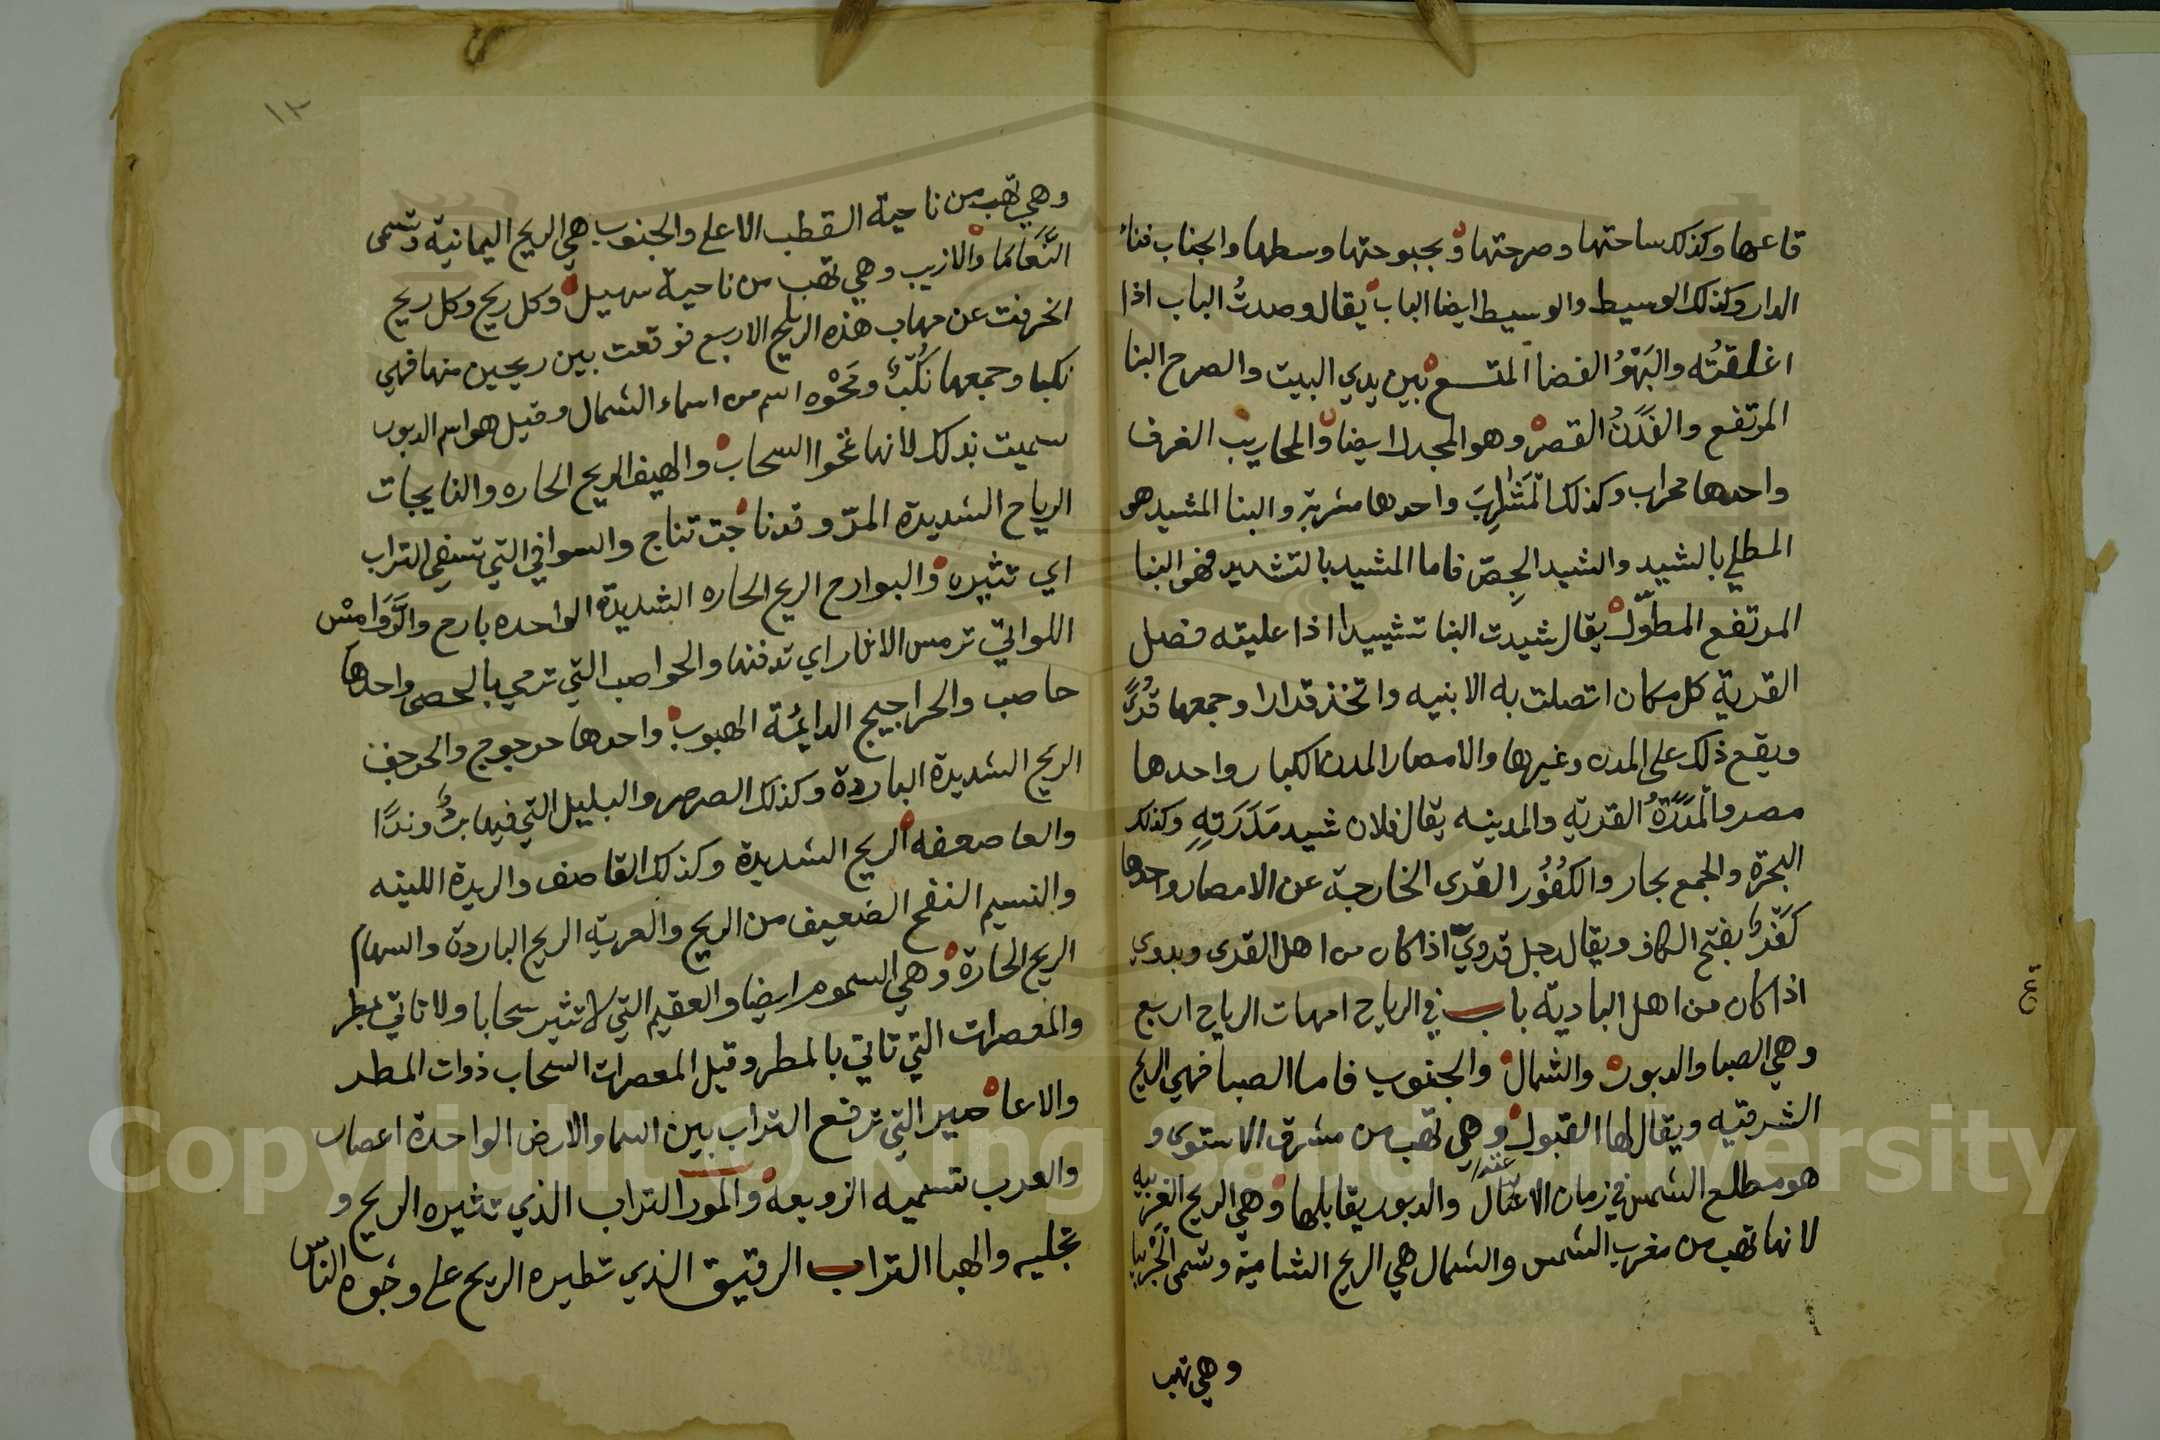 قاعها وكذلك ساحتها وصرحتها وبحبوحتها وسطها والجناب فناء
الدار وكذلك الوسيط والوسيط ايضا الباب يقال وصدتُ الباب اذا
اغلقتُه والبَهْوُ الفضا المتسع بين يدي البيت والصرح البنا
المرتفع والفَدَنُ القصر وهو المجدل ايضا والمحاريب الغرف
واحدها محراب وكذلك المَشَارِبَ واحدها مشربة والبنا المشيد هو
المطلي بالشيد والشيد الجِصّ فاما المشيد بالتشديد فهو البنا
المرتفع المطوّل يقال شيدت البنا تشييدا اذا عليته فصل
القرية كل مكان اتصلت به الابنيه واتخذ قرارا وجمعها قُرًى
ويقع ذلك على المدن وغيرها والامصار المدن الكبار واحدها
مصر والمَدَرَةُ القرية والمدينه يقال فلان شيد مَدَرَتِهِ وكذلك
البحرة والجمع بحار والكُفُور القرى الخارجة عن الامصار واحدها
كَفْرٌ بفتح الكاف ويقال رجل قرويّ اذا كان من اهل القرى وبدوي
اذا كان من اهل البادية باب في الرياح امهات الرياح اربع
وهي الصبا والدبور والشمال والجنوب فاما الصبا فهي الريح
الشرقيه ويقال لها القبول وهي تهب من مشرق الاستوى و
هو مطلع الشمس في زمان الاعتدال والدبور يقابلها وهي الريح الغربيه
لانها تهب من مغرب الشمس والشمال هي الريح الشامية وتسمى الجِرْبيا
وهي تهب
١٢
وهي تهب من ناحية القطب الاعلى والجنوب هي الريح اليمانية وتسمى
النُّعَامَا والازيب وهي تهب من ناحية سهيل وكل ريح وكل ريح
انحرفت عن مهاب هذه الرياح الاربع فوقعت بين ريحين منها فهي
نكبا وجمعها نُكْبٌ ومَحْوه اسم من اسماء الشمال وقيل هو اسم الدبور
سميت بذلك لانها تمحوا السحاب والهيف الريح الحاره والنايجات
الرياح الشديدة المرّ وقد ناجت تناج والسوافي التي تسفي التراب
اي تثيره والبوارح الريح الحاره الشديدة الواحده بارح والرَّوَامِسْ
اللواتي ترمس الاثار اي تدفنها والحواصب التي ترمي بالحصى واحدها
حاصب والحراجيج الدايمُة الهبوب واحدها حرجوج والحرجف
الريح الشديدة الباردة وكذلك الصرصر والبليل التي فيها بردٌ وندًا
والعاصفه الريح الشديدة وكذلك القاصف والريدة اللينه
والنسيم النفح الضعيف من الريح والعرية الريح الباردة والسهام
الريح الحارة وهي السموم ايضا والعقيم التي لا تثير سحابا ولا تاتي بمطر
والمعصرات التي تاتي بالمطر وقيل المعصرات السحاب ذوات المطر
والاعاصير التي ترفع التراب بين السما والارض الواحدة اعصار
والعرب تسميه الزوبعة والمور التراب الذي تثيره الريح و
تجليه والهبا التراب الرقيق الذي تطيره الريح على وجوه الناس
Copyright © King Saud University